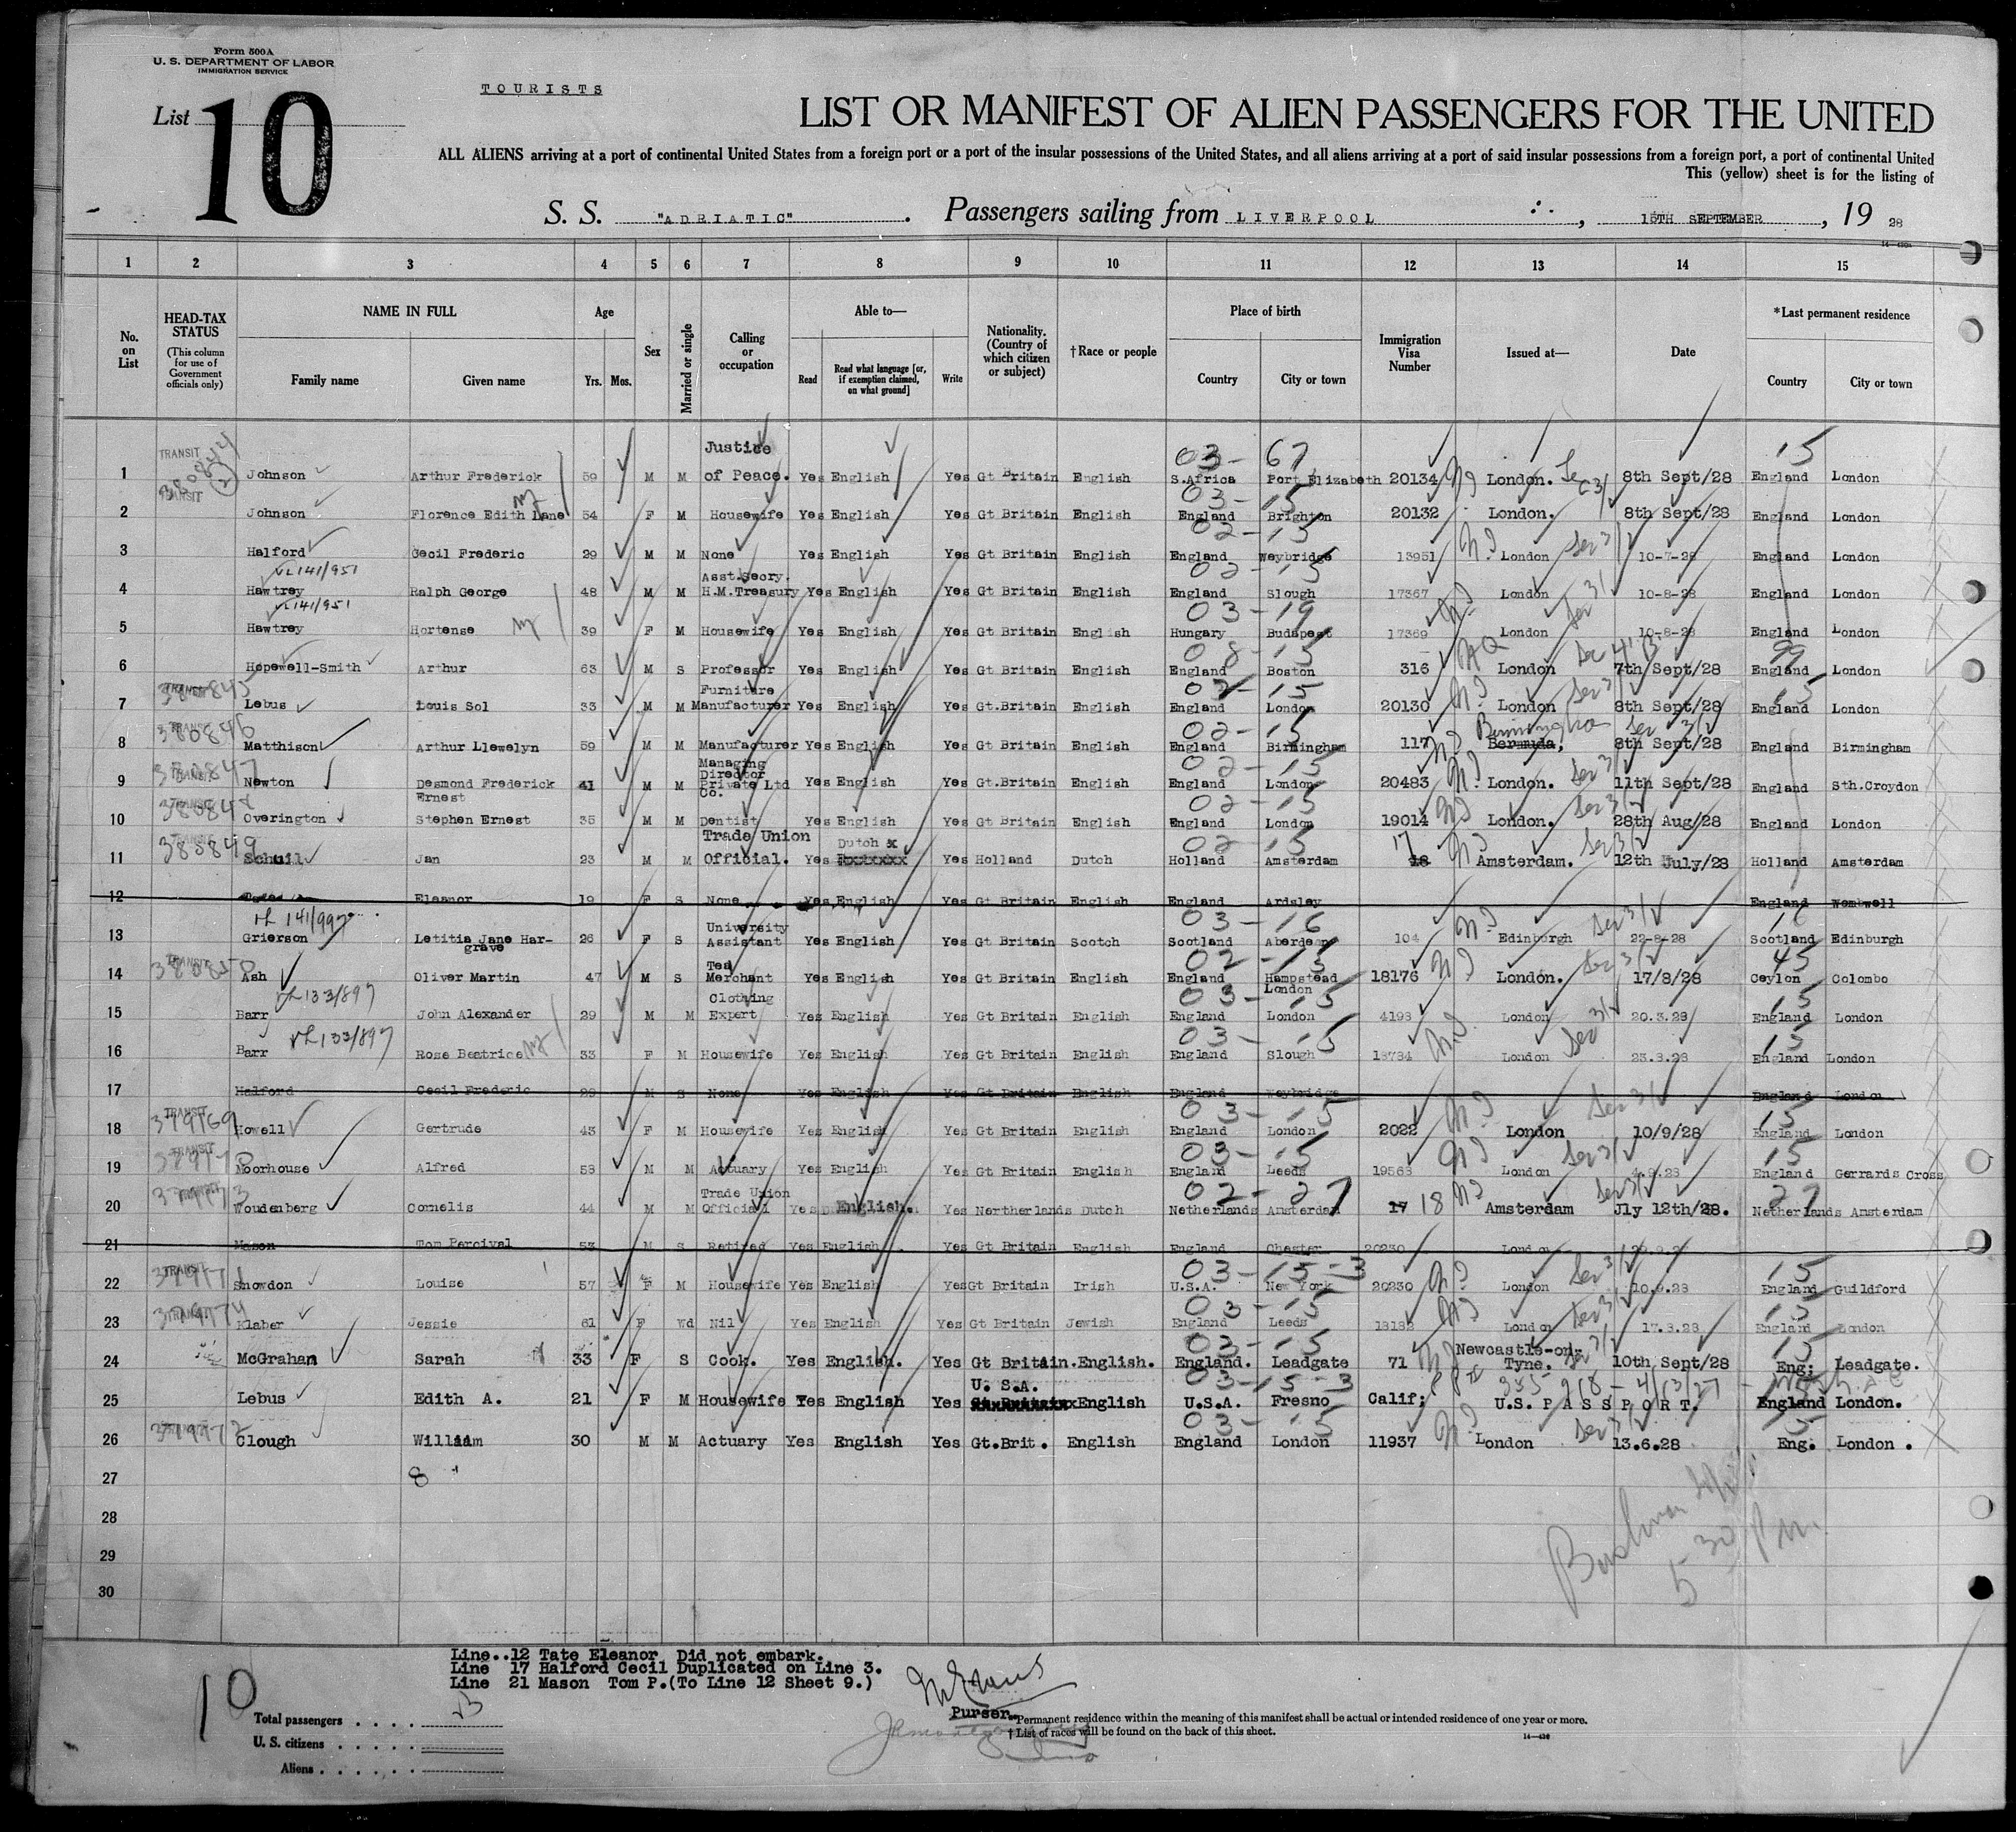 Form 500A
U. S. DEPARTMENT OF LABOR
IMMIGRATION SERVICE
TOURISTS
List 10
LIST OR MANIFEST OF ALIEN PASSENGERS FOR THE UNITED
ALL ALIENS arriving at a port of continental United States from a foreign port or a port of the insular possessions of the United States, and all aliens arriving at a port of said insular possessions from a foreign port, a port of continental United
This (yellow) sheet is for the listing of
S. S. "ADRIATIC". Passengers sailing from LIVERPOOL, 15TH SEPTEMBER, 19 28
1 2 3 4 5 6 7 8 9 10 11 12 13 14 15
No. on List
HEAD-TAX STATUS (This column for use of Government officials only)
NAME IN FULL Family name Given name
Age Yrs. Mos.
Sex
Married or single
Calling or occupation
Able to— Read Read what language [or, if exemption claimed, on what ground] Write
Nationality. (Country of which citizen or subject)
†Race or people
Place of birth Country City or town
Immigration Visa Number
Issued at—
Date
*Last permanent residence Country City or town
1 TRANSIT 380844 (2) Johnson Arthur Frederick 59 M M Justice of Peace. Yes English Yes Gt Britain English S.Africa Port Elizabeth 03- 67 20134 London. 8th Sept/28 15 England London
2 TRANSIT Johnson Florence Edith Lane 54 F M Housewife Yes English Yes Gt Britain English England Brighton 03-15 20132 London. 8th Sept/28 England London
3 Halford Cecil Frederic 29 M M None Yes English Yes Gt Britain English England Weybridge 02-15 13951 London 10-7-28 England London
4 VL141/951 Hawtrey Ralph George 48 M M Asst.Secry. H.M.Treasury Yes English Yes Gt Britain English England Slough 02-15 17367 London 10-8-28 England London
5 VL141/951 Hawtrey Hortense 39 F M Housewife Yes English Yes Gt Britain English Hungary Budapest 03-19 17369 London 10-8-28 England London
6 Hopewell-Smith Arthur 63 M S Professor Yes English Yes Gt Britain English England Boston 08-15 316 London 7th Sept/28 99 England London
7 TRANSIT 380845 Lebus Louis Sol 33 M M Furniture Manufacturer Yes English Yes Gt.Britain English England London 02-15 20130 London 8th Sept/28 15 England London
8 TRANSIT 380846 Matthison Arthur Llewelyn 59 M M Manufacturer Yes English Yes Gt Britain English England Birmingham 02-15 117 Bermuda, Birmingham 8th Sept/28 England Birmingham
9 TRANSIT 380847 Newton Desmond Frederick Ernest 41 M M Managing Director Private Ltd Co. Yes English Yes Gt.Britain English England London 02-15 20483 London. 11th Sept/28 England Sth.Croydon
10 TRANSIT 380848 Overington Stephen Ernest 35 M M Dentist Yes English Yes Gt Britain English England London 02-15 19014 London. 28th Aug/28 England London
11 TRANSIT 380849 Schuil Jan 23 M M Trade Union Official. Yes Dutch Yes Holland Dutch Holland Amsterdam 02-15 18 17 Amsterdam. 12th July/28 Holland Amsterdam
12 Eleanor 19 F S None Yes English Yes Gt Britain English England Ardsley England Wombwell
13 VL 141/997 Grierson Letitia Jane Hargrave 26 F S University Assistant Yes English Yes Gt Britain Scotch Scotland Aberdeen 03-16 104 Edinburgh 22-8-28 16 Scotland Edinburgh
14 TRANSIT 380850 Ash Oliver Martin 47 M S Tea Merchant Yes English Yes Gt Britain English England Hampstead London 02-15 18176 London. 17/8/28 45 Ceylon Colombo
15 VL133/897 Barr John Alexander 29 M M Clothing Expert Yes English Yes Gt Britain English England London 03-15 4193 London 20.3.28 15 England London
16 VL133/897 Barr Rose Beatrice 33 F M Housewife Yes English Yes Gt Britain English England Slough 03-15 18784 London 23.8.28 15 England London
17 Halford Cecil Frederic 29 M S None Yes English Yes Gt Britain English England Weybridge England London
18 TRANSIT 379769 Howell Gertrude 43 F M Housewife Yes English Yes Gt Britain English England London 03-15 2022 London 10/9/28 15 England London
19 TRANSIT Moorhouse Alfred 53 M M Actuary Yes English Yes Gt Britain English England Leeds 03-15 19563 London 15 England Gerrards Cross
20 Woudenberg Cornelis 44 M M Trade Union Official Yes English. Yes Northerlands Dutch Netherlands Amsterdam 02-27 17 18 Amsterdam Jly 12th/28. 27 Netherlands Amsterdam
21 Mason Tom Percival 53 M S Retired Yes English Yes Gt Britain English England Chester 20230 London
22 TRANSIT Snowdon Louise 57 F M Housewife Yes English Yes Gt Britain Irish U.S.A. New York 03-15-3 20230 London 10.9.28 15 England Guildford
23 TRANSIT 379774 Klaber Jessie 61 F Wd Nil Yes English Yes Gt Britain Jewish England Leeds 03-15 18182 London 17.8.28 15 England London
24 McGrahan Sarah 33 F S Cook. Yes English. Yes Gt Britain. English. England. Leadgate 03-15 71 Newcastle-on-Tyne. 10th Sept/28 15 Eng; Leadgate.
25 Lebus Edith A. 21 F M Housewife Yes English Yes U. S.A. English U.S.A. Fresno Calif; 03-15-3 U.S. PASSPORT. England London.
26 Clough William 30 M M Actuary Yes English Yes Gt.Brit. English England London 03-15 11937 London 13.6.28 15 Eng. London.
27 8
28
29
30
5 30 Pm.
Line..12 Tate Eleanor Did not embark.
Line 17 Halford Cecil Duplicated on Line 3.
Line 21 Mason Tom P.(To Line 12 Sheet 9.)
10
Purser.
Total passengers . . . .
U. S. citizens . . . . .
Aliens . . . . . .
*Permanent residence within the meaning of this manifest shall be actual or intended residence of one year or more.
† List of races will be found on the back of this sheet.